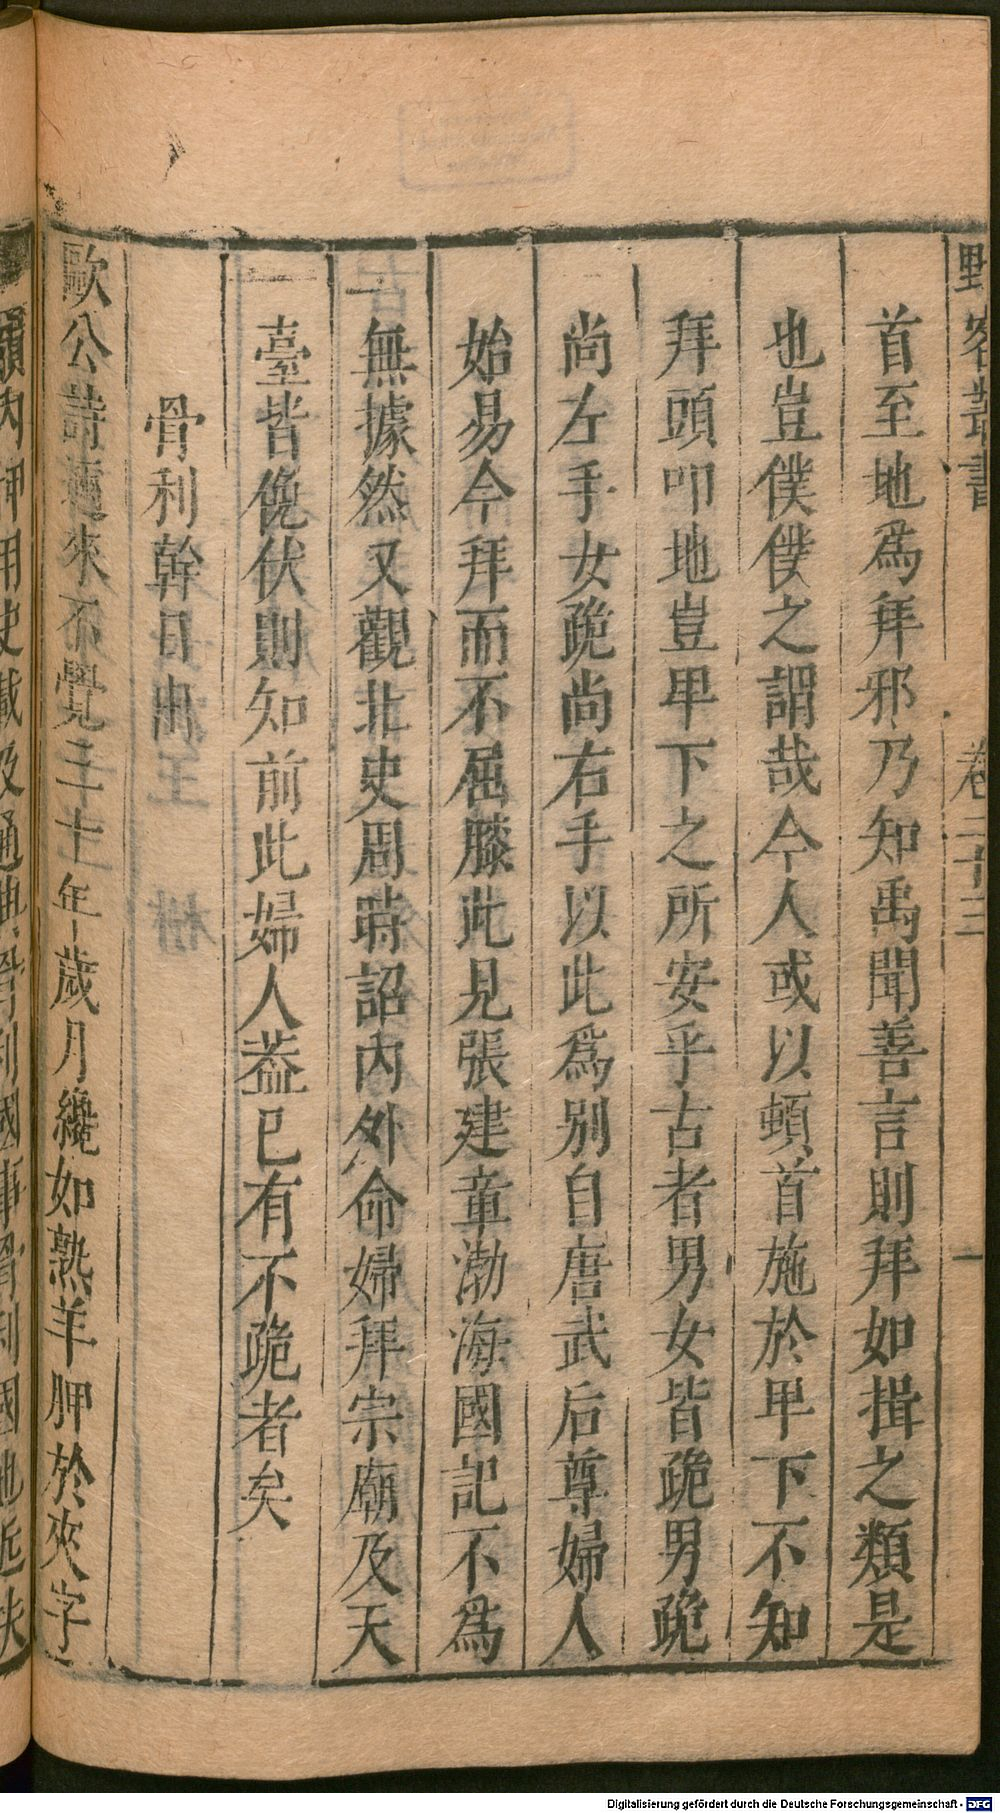 野客叢書 卷二十三 一
首至地爲拜邪乃知禹聞善言則拜如揖之類是
也豈僕僕之謂哉今人或以頓首施於卑下不知
拜頭叩地豈卑下之所安乎古者男女皆跪男跪
尚左手女跪尚右手以此爲別自唐武后尊婦人
始易今拜而不屈膝此見張建章渤海國記不爲
無據然又觀北史周時詔內外命婦拜宗廟及天
臺皆俛伏則知前此婦人葢已有不跪者矣
骨利幹日出
歐公詩邇來不覺三十年歲月纔如熟羊胛於夾字
韻內押用史載及通典骨利國事骨利國地近扶
Digitalisierung gefördert durch die Deutsche Forschungsgemeinschaft - DFG